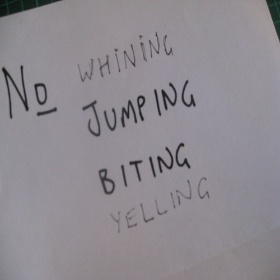 No WHINING
JUMPING
BITING
YELLING